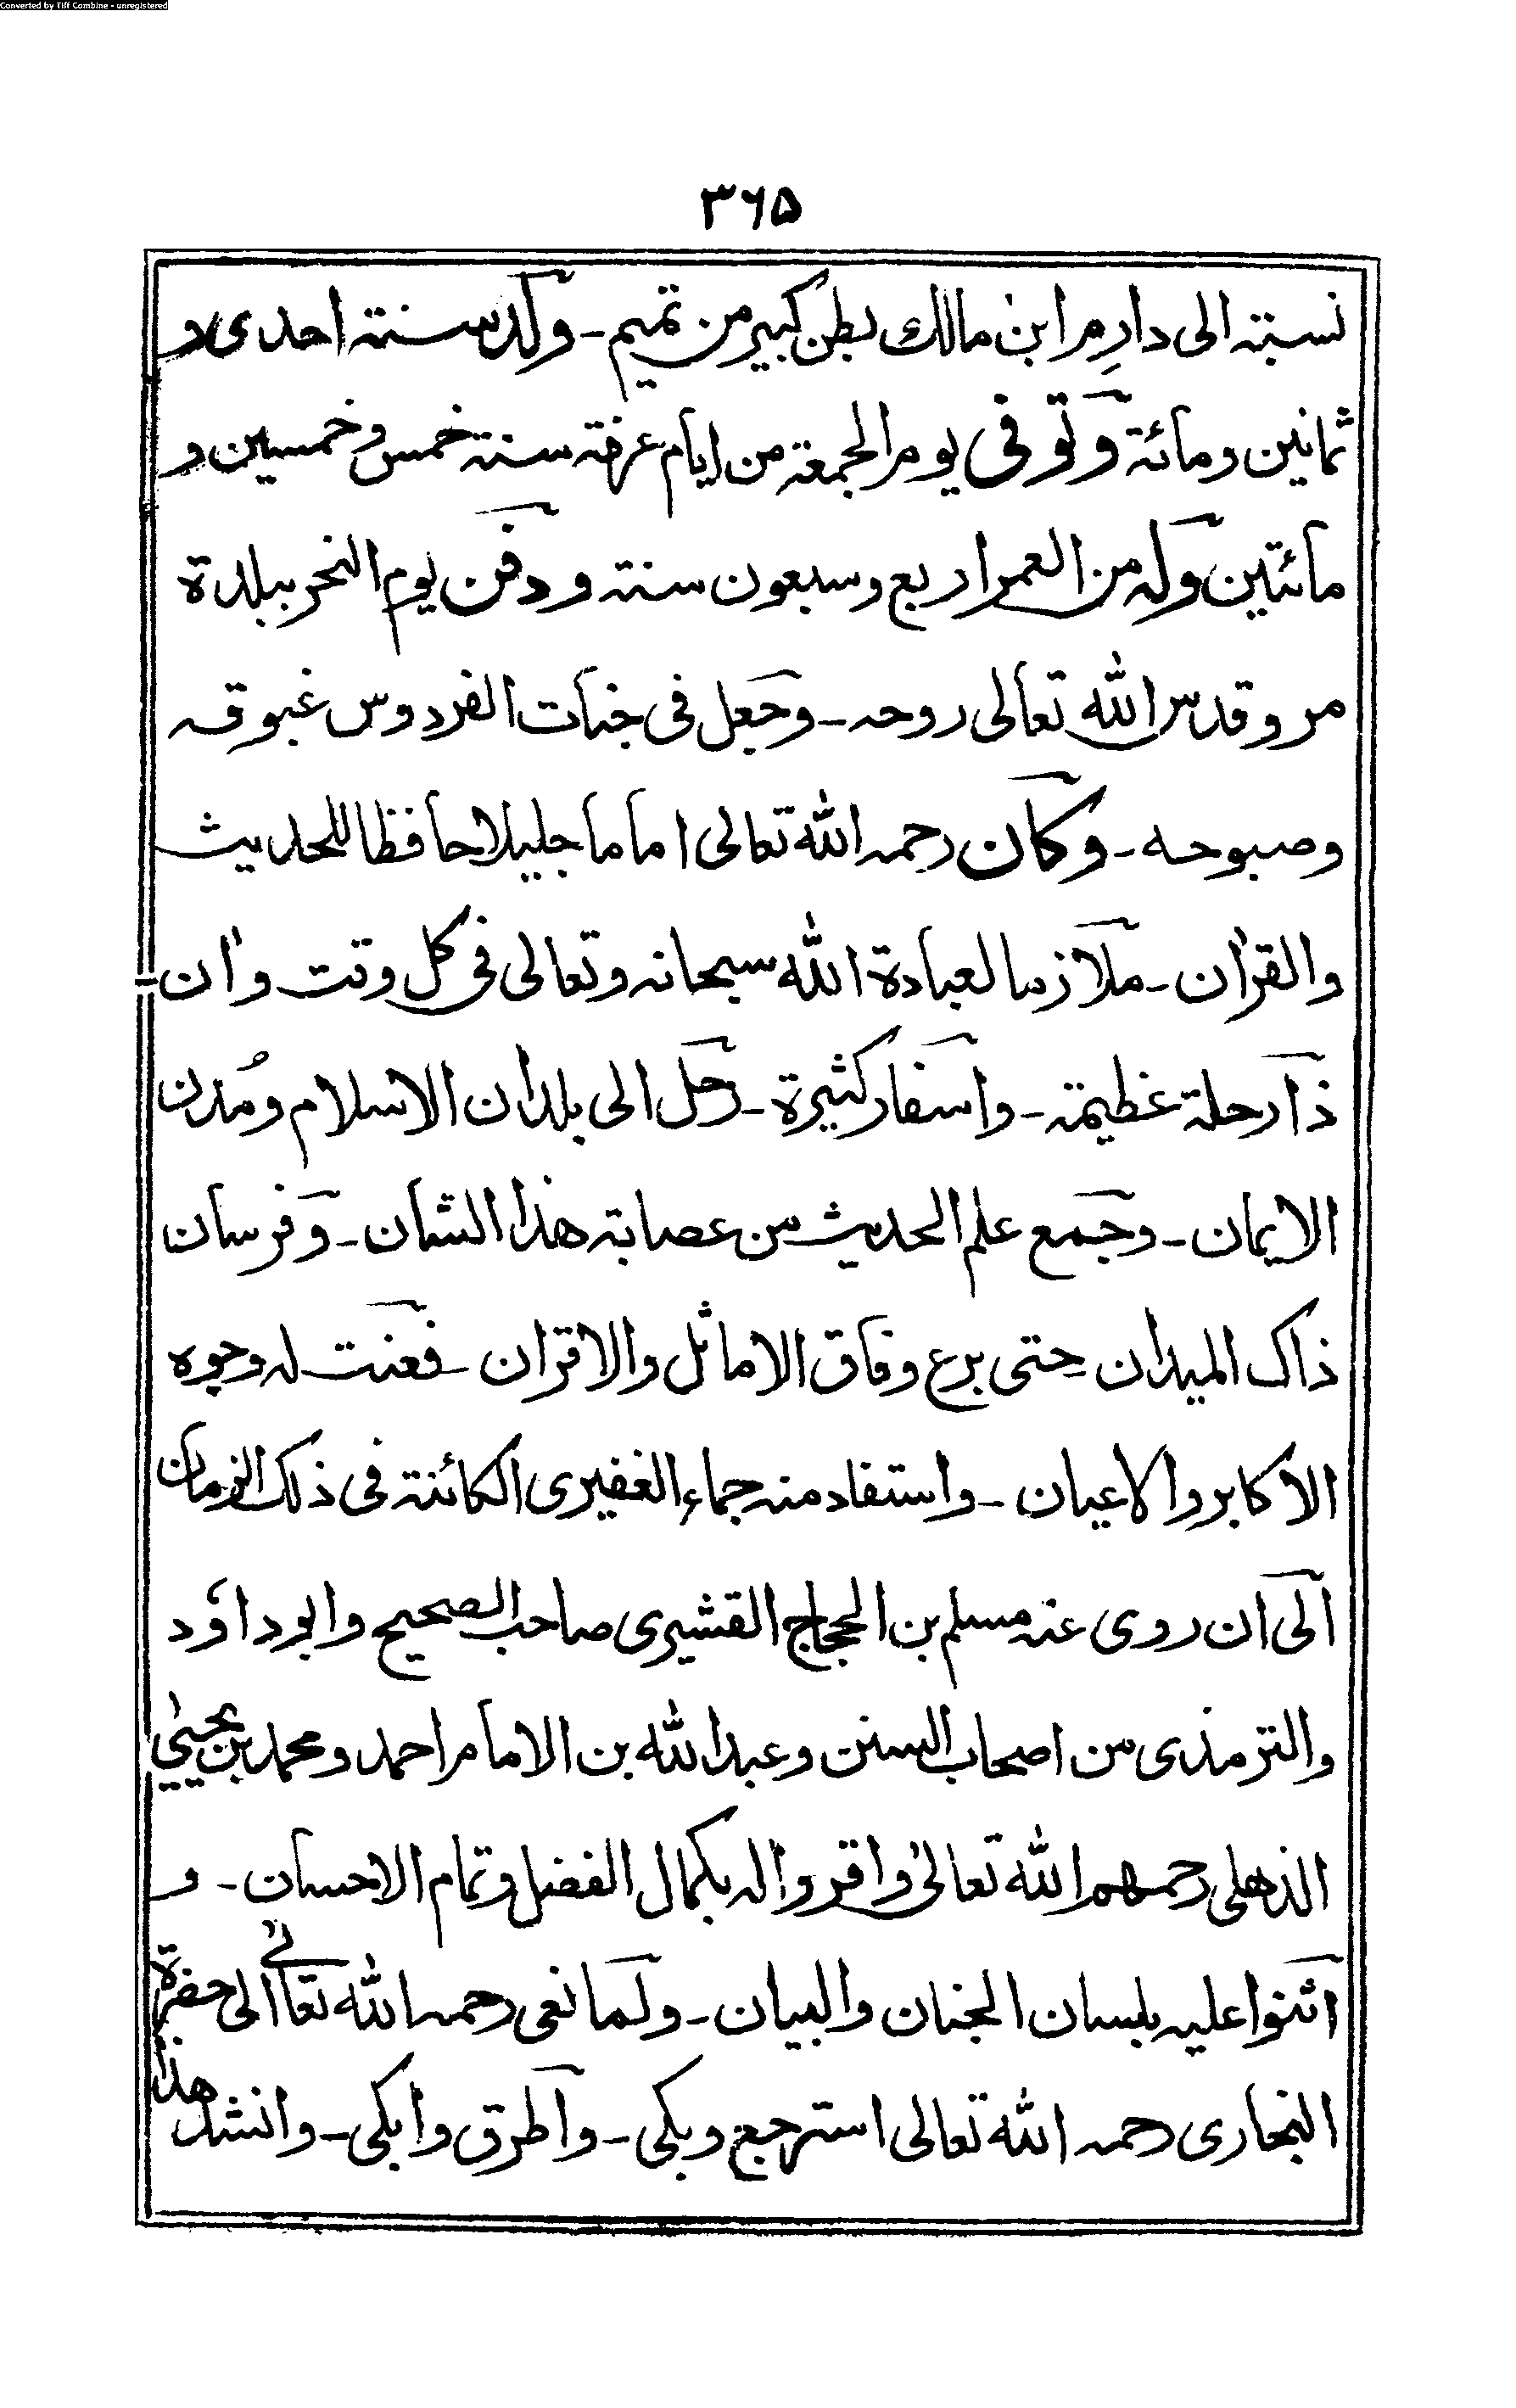 Converted by Tiff Combine - unregistered
۳۶۵
نسبتہ الی دارِم ابن مالک بطن کبیر من تمیم ۔ ولد سنتہ احدی و
ثمانین ومائۃ وتوفی یوم الجمعۃ من ایام عرفۃ سنتۃ خمس وخمسین و
مائتین ولہ من العمر اربع وسبعون سنتہ ودفن یوم النحر ببلدۃ
مرو قدس اللہ تعالی روحہ ۔ وجعل فی جنات الفردوس غبوقہ
وصبوحہ ۔ وکان رحمہ اللہ تعالی اماما جلیلا حافظا للحدیث
والقرآن ۔ ملازما لعبادۃ اللہ سبحانہ وتعالی فی کل وقت وآن ۔
ذا رحلۃ عظیمۃ ۔ واسفار کثیرۃ ۔ رحل الی بلدان الاسلام ومُدن
الایمان ۔ وجمع علم الحدیث من عصابۃ ھذا الشان ۔ وفرسان
ذاک المیدان حتی برع وفاق الاماثل والاقران ۔ فعنت لہ وجوہ
الاکابر والاعیان ۔ واستفاد منہ جماء الغفیری الکائنۃ فی ذلک الزمان
الی ان روی عنہ مسلم بن الحجاج القشیری صاحب الصحیح وابو داؤد
والترمذی من اصحاب السنن وعبد اللہ بن الامام احمد ومحمد بن یحییٰ
الذھلی رحمھم اللہ تعالیٰ واقروا لہ بکمال الفضل وتمام الاحسان ۔ و
اثنوا علیہ بلسان الجنان والبیان ۔ ولما نعی رحمہ اللہ تعالی الی حضرۃ
البخاری رحمہ اللہ تعالی استرجع وبکی ۔ واطرق وابکی ۔ وانشد ھذا